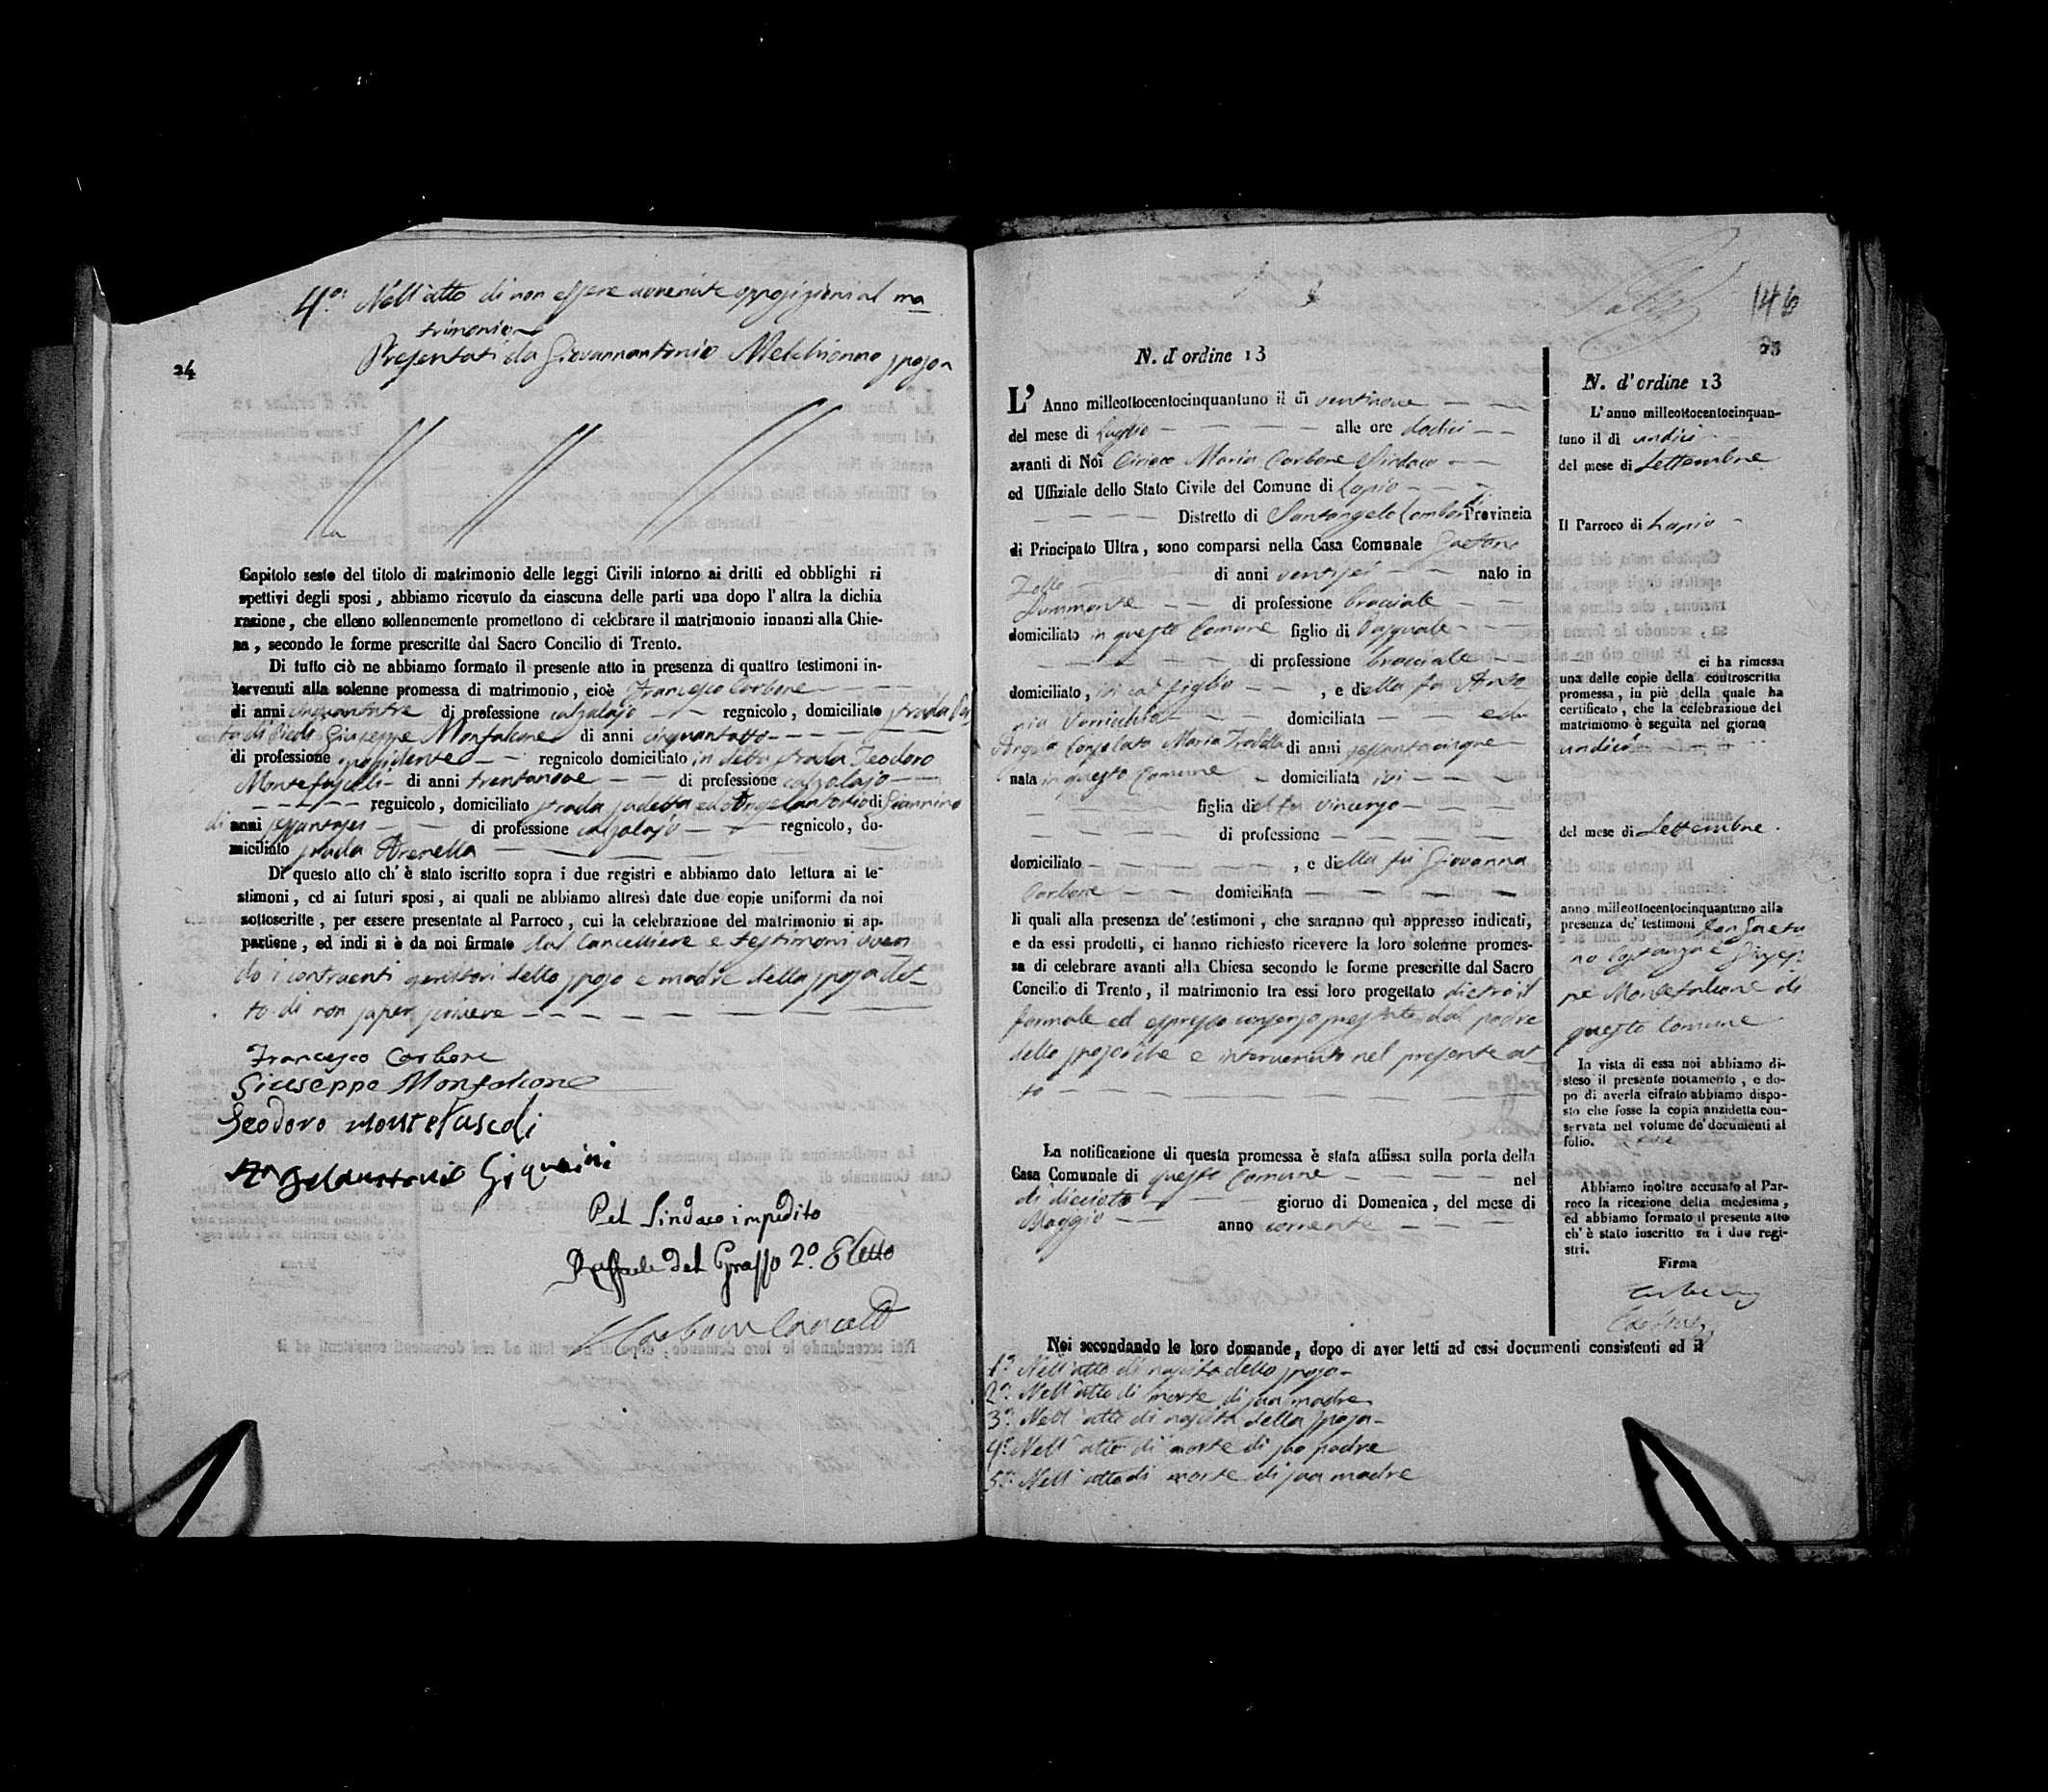 4.° Nell'atto di non essere avvenute opposizioni al ma
trimonio
Presentati da Giovannantonio Melchionno sposo
24
Capitolo sesto del titolo di matrimonio delle leggi Civili intorno ai dritti ed obblighi ri
spettivi degli sposi, abbiamo ricevuto da ciascuna delle parti una dopo l'altra la dichia
razione, che elleno sollennemente promettono di celebrare il matrimonio innanzi alla Chie-
sa, secondo le forme prescritte dal Sacro Concilio di Trento.
Di tutto ciò ne abbiamo formato il presente atto in presenza di quattro testimoni in-
tervenuti alla solenne promessa di matrimonio, cioè Francesco Carbone
di anni cinquantatre di professione calzolajo regnicolo, domiciliato strada Por
ta di Piedi Giuseppe Monfalcone di anni cinquantotto
di professione possidente regnicolo domiciliato in detta strada Teodoro
Montefuscoli di anni trentanove di professione calzolajo
regnicolo, domiciliato strada sudetta ed Angelantonio di Giannino
di anni sessantasei di professione calzolajo regnicolo, do-
miciliato strada Arenella
Di questo atto ch'è stato iscritto sopra i due registri e abbiamo dato lettura ai te-
stimoni, ed ai futuri sposi, ai quali ne abbiamo altresì date due copie uniformi da noi
sottoscritte, per essere presentate al Parroco, cui la celebrazione del matrimonio si ap-
partiene, ed indi si è da noi firmato dal Cancelliere e testimoni aven
do i contraenti genitori dello sposo e madre della sposa det
to di non saper scrivere
Francesco Carbone
Giuseppe Monfalcone
Teodoro Montefuscoli
Angelantonio Giannini
Pel Sindaco impedito
Raffaele Del Grosso 2.° Eletto
146
25
N. d'ordine 13
L'Anno milleottocentocinquantuno il dì ventinove
del mese di Luglio alle ore dodici
avanti di Noi Ciriaco Maria Carbone Sindaco
ed Uffiziale dello Stato Civile del Comune di Lapio
Distretto di Santangelo Lombardi Provincia
di Principato Ultra, sono comparsi nella Casa Comunale Gaetano
di anni ventisei nato in
di professione bracciale
domiciliato in questo Comune figlio di Pasquale
di professione bracciale
domiciliato, ivi col figlio, e di ella fu Anto
nia domiciliata ed
Consolata Maria di anni
nata in questo Comune domiciliata ivi
figlia di el fu Vincenzo
di professione
domiciliato, e di ella fu Giovanna
Carbone domiciliata
li quali alla presenza de' testimoni, che saranno quì appresso indicati,
e da essi prodotti, ci hanno richiesto ricevere la loro solenne promes-
sa di celebrare avanti alla Chiesa secondo le forme prescritte dal Sacro
Concilio di Trento, il matrimonio tra essi loro progettato dietro il
formale ed espresso consenso prestato dal padre
dello sposo che è intervenuto nel presente at
to
La notificazione di questa promessa è stata affissa sulla porta della
Casa Comunale di questo Comune nel
dì diciotto giorno di Domenica, del mese di
Maggio anno corrente
Noi secondando le loro domande, dopo di aver letti ad essi documenti consistenti ed il
1.° Nell'atto di nascita dello sposo
2.° Nell'atto di morte di sua madre
3.° Nell'atto di nascita della sposa
4.° Nell'atto di morte di suo padre
5.° Nell'atto di morte di sua madre
N. d'ordine 13
L'anno milleottocentocinquan-
tuno il di undici
del mese di Settembre
Il Parroco di Lapio
ci ha rimessa
una delle copie della controscritta
promessa, in piè della quale ha
certificato, che la celebrazione del
matrimonio è seguita nel giorno
undici
del mese di Settembre
anno milleottocentocinquantuno alla
presenza de' testimoni Don Gaeta
no Costanza e Giusep
pe Monfalcone di
questo Comune
In vista di essa noi abbiamo di-
steso il presente notamento, e do-
po di averla cifrato abbiamo dispo-
sto che fosse la copia anzidetta con-
servata nel volume de' documenti al
folio.
Abbiamo inoltre accusato al Par-
roco la ricezione della medesima,
ed abbiamo formato il presente atto
ch'è stato inscritto su i due regi-
stri.
Firma